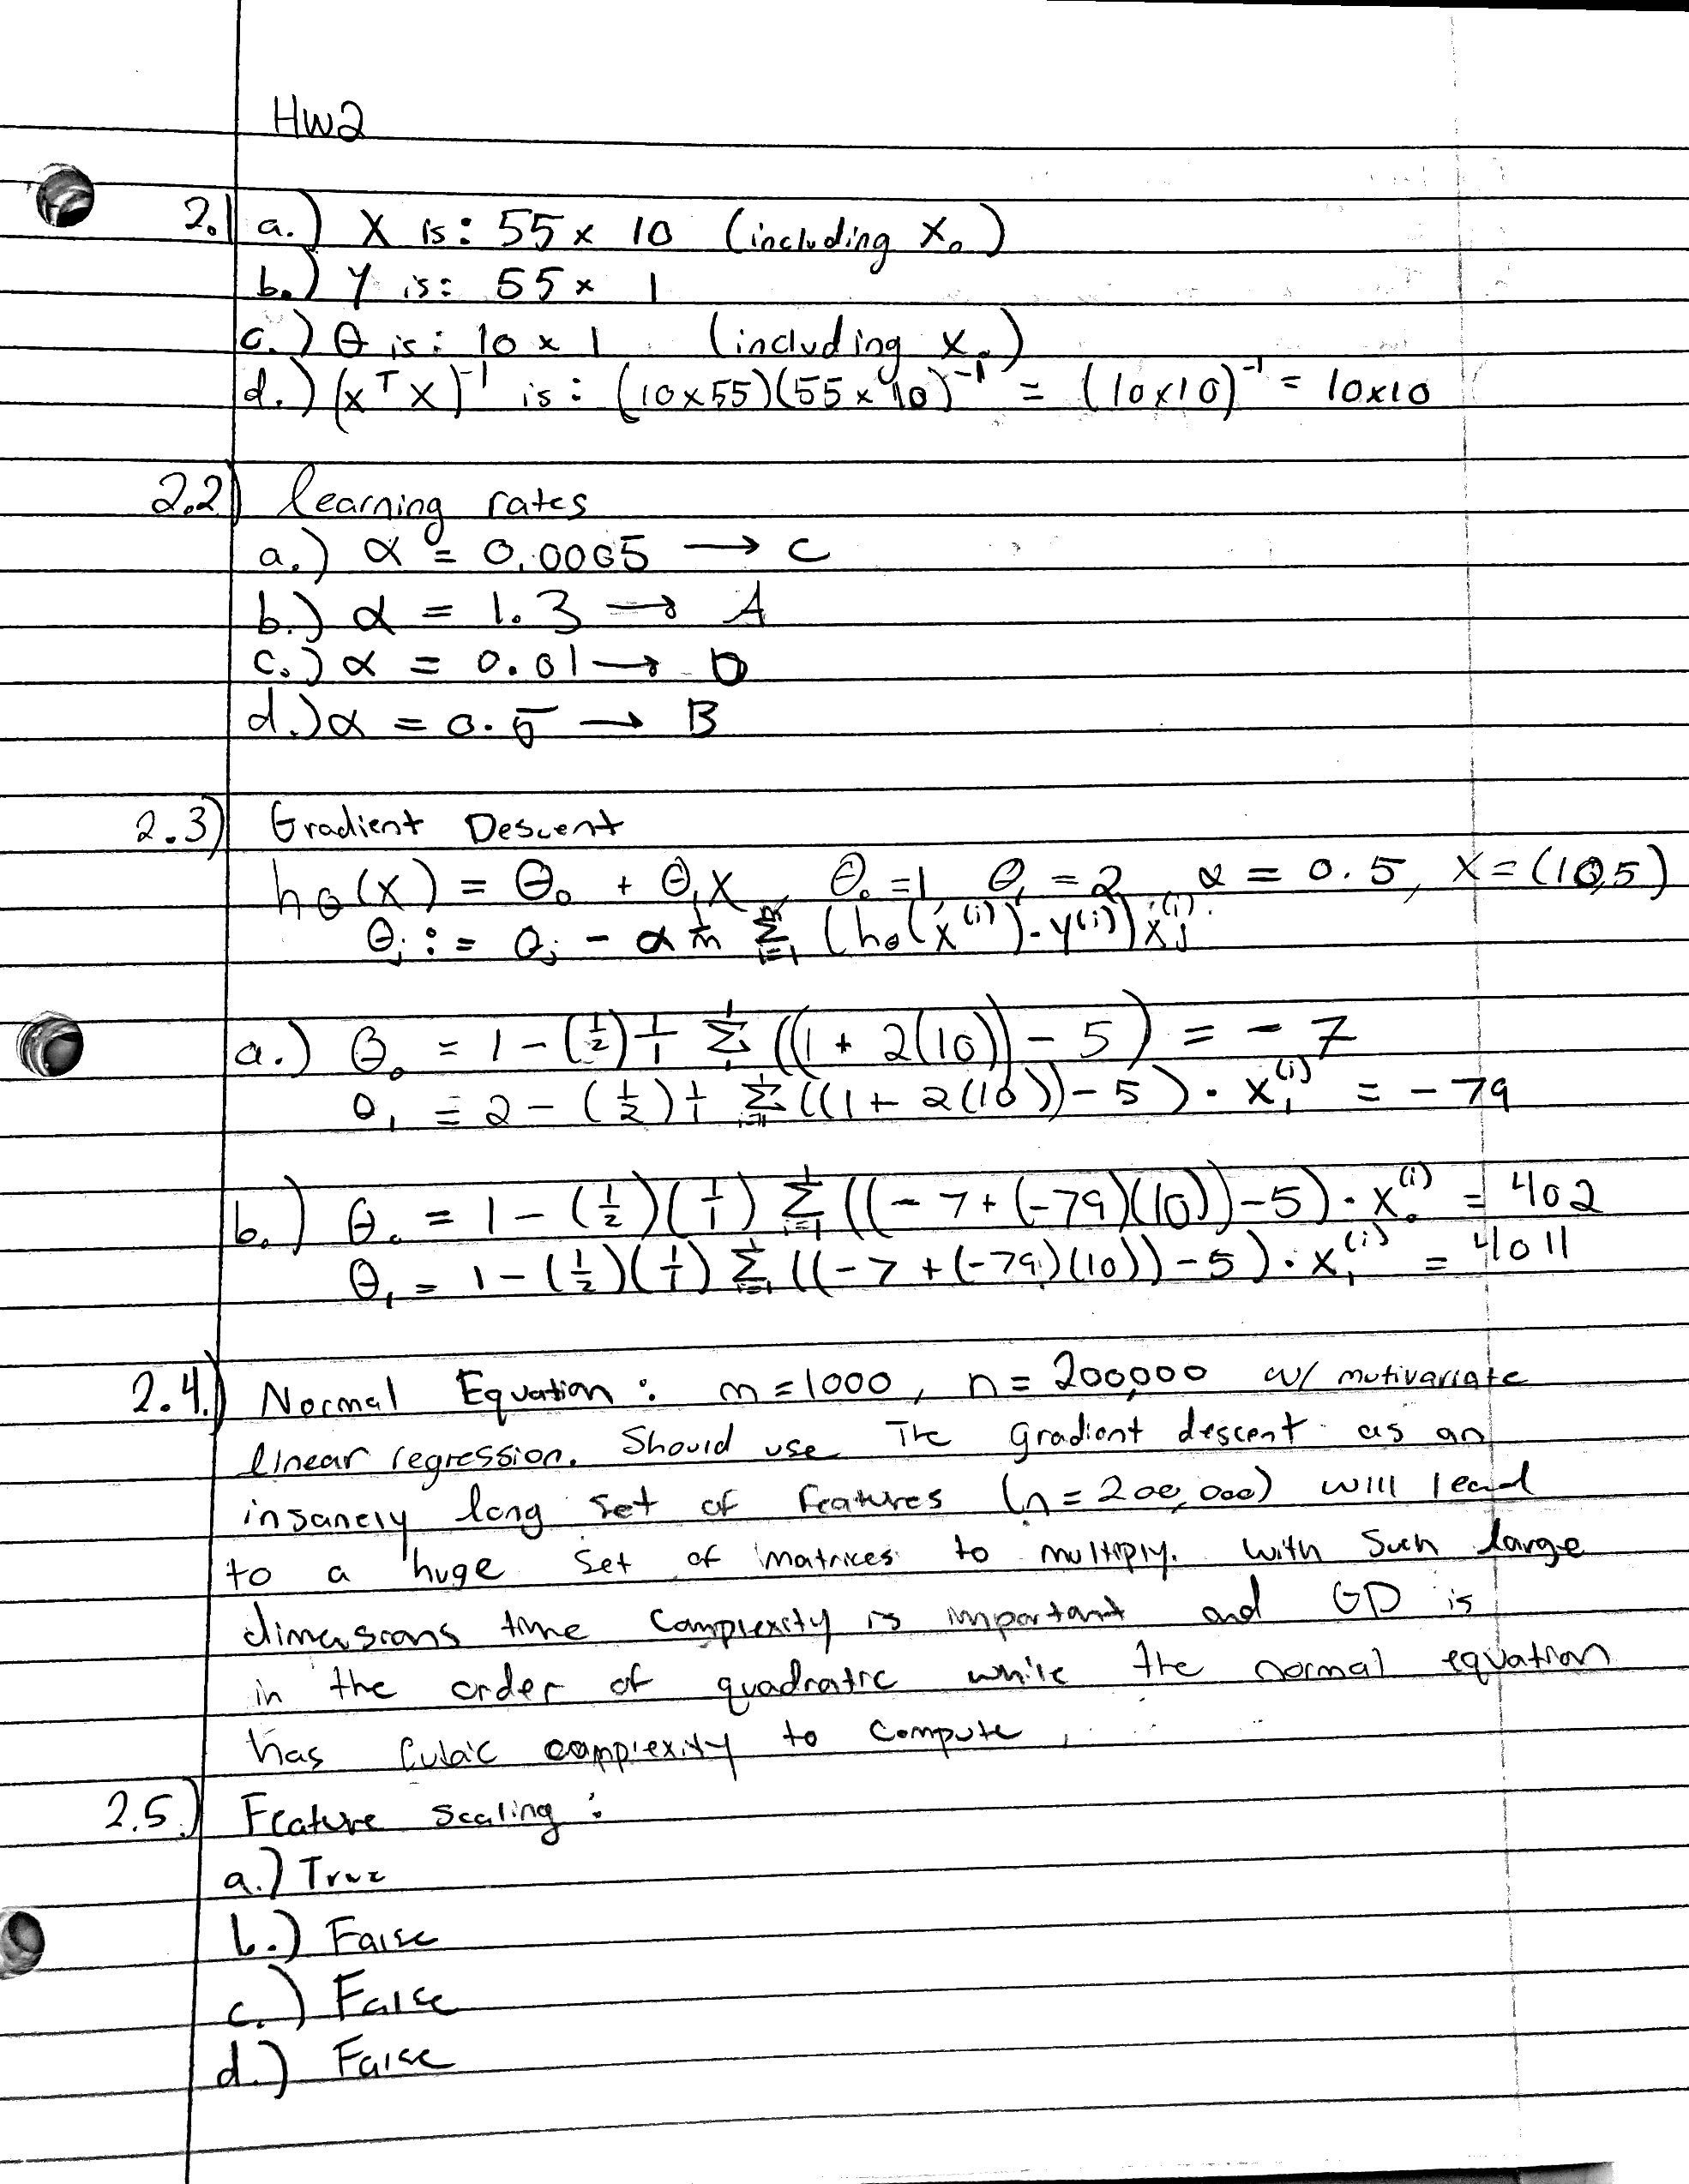 HW2
2.1 a.) X is: 55 x 10 (including X₀)
b.) Y is: 55 x 1
c.) θ is: 10 x 1 (including X₀)
d.) (X^T X)^-1 is: (10x55)(55x10)^-1 = (10x10)^-1 = 10x10
2.2) learning rates
a.) α = 0.0005 → C
b.) α = 1.3 → A
c.) α = 0.01 → D
d.) α = 0.5 → B
2.3) Gradient Descent
hθ(X) = θ₀ + θ₁X, θ₀ = 1, θ₁ = 2, α = 0.5, X = (10,5)
θj := θj - α 1/m Σ_{i=1}^{m} (hθ(x^(i)) - y^(i)) xj^(i)
a.) θ₀ = 1 - (1/2) 1/1 Σ_1^1 ((1 + 2(10)) - 5) = -7
θ₁ = 2 - (1/2) 1/1 Σ_{i=1}^1 ((1 + 2(10)) - 5) · x₁^(i) = -79
b.) θ₀ = 1 - (1/2)(1/1) Σ_{i=1}^1 ((-7 + (-79)(10)) - 5) · x₀^(i) = 402
θ₁ = 1 - (1/2)(1/1) Σ_{i=1}^1 ((-7 + (-79)(10)) - 5) · x₁^(i) = 4011
2.4.) Normal Equation: m = 1000, n = 200,000 w/ mutivariate
linear regression. Should use The gradient descent as an
insanely long set of features (n = 200,000) will lead
to a huge set of matrices to multiply. With such large
dimensions time complexity is important and GD is
in the order of quadratic while the normal equation
has cubic complexity to compute.
2.5.) Feature scaling:
a.) True
b.) False
c.) False
d.) False